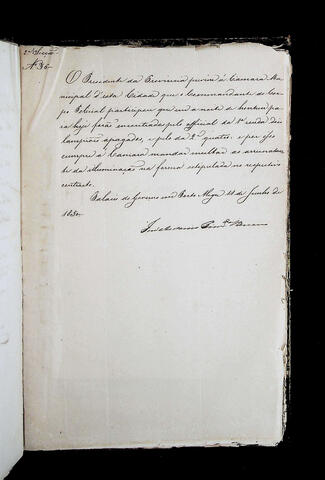 2ª Secção
Nº 36
O Presidente da Provincia previne á Camara Mu-
nicipal d'esta Cidade que o Commandante do Cor-
po Policial participou que em a noute de hontem pa-
ra hoje forão encontrados pelo official da 1ª ronda dois
lampiões apagados, e pelo da 2ª quatro: e por isso
cumpre á Camara mandar multar ao arrematan-
te da illuminação na forma estipulada no respectivo
contracto.
Palacio do Governo em Porto Alegre 11 de Junho de
185